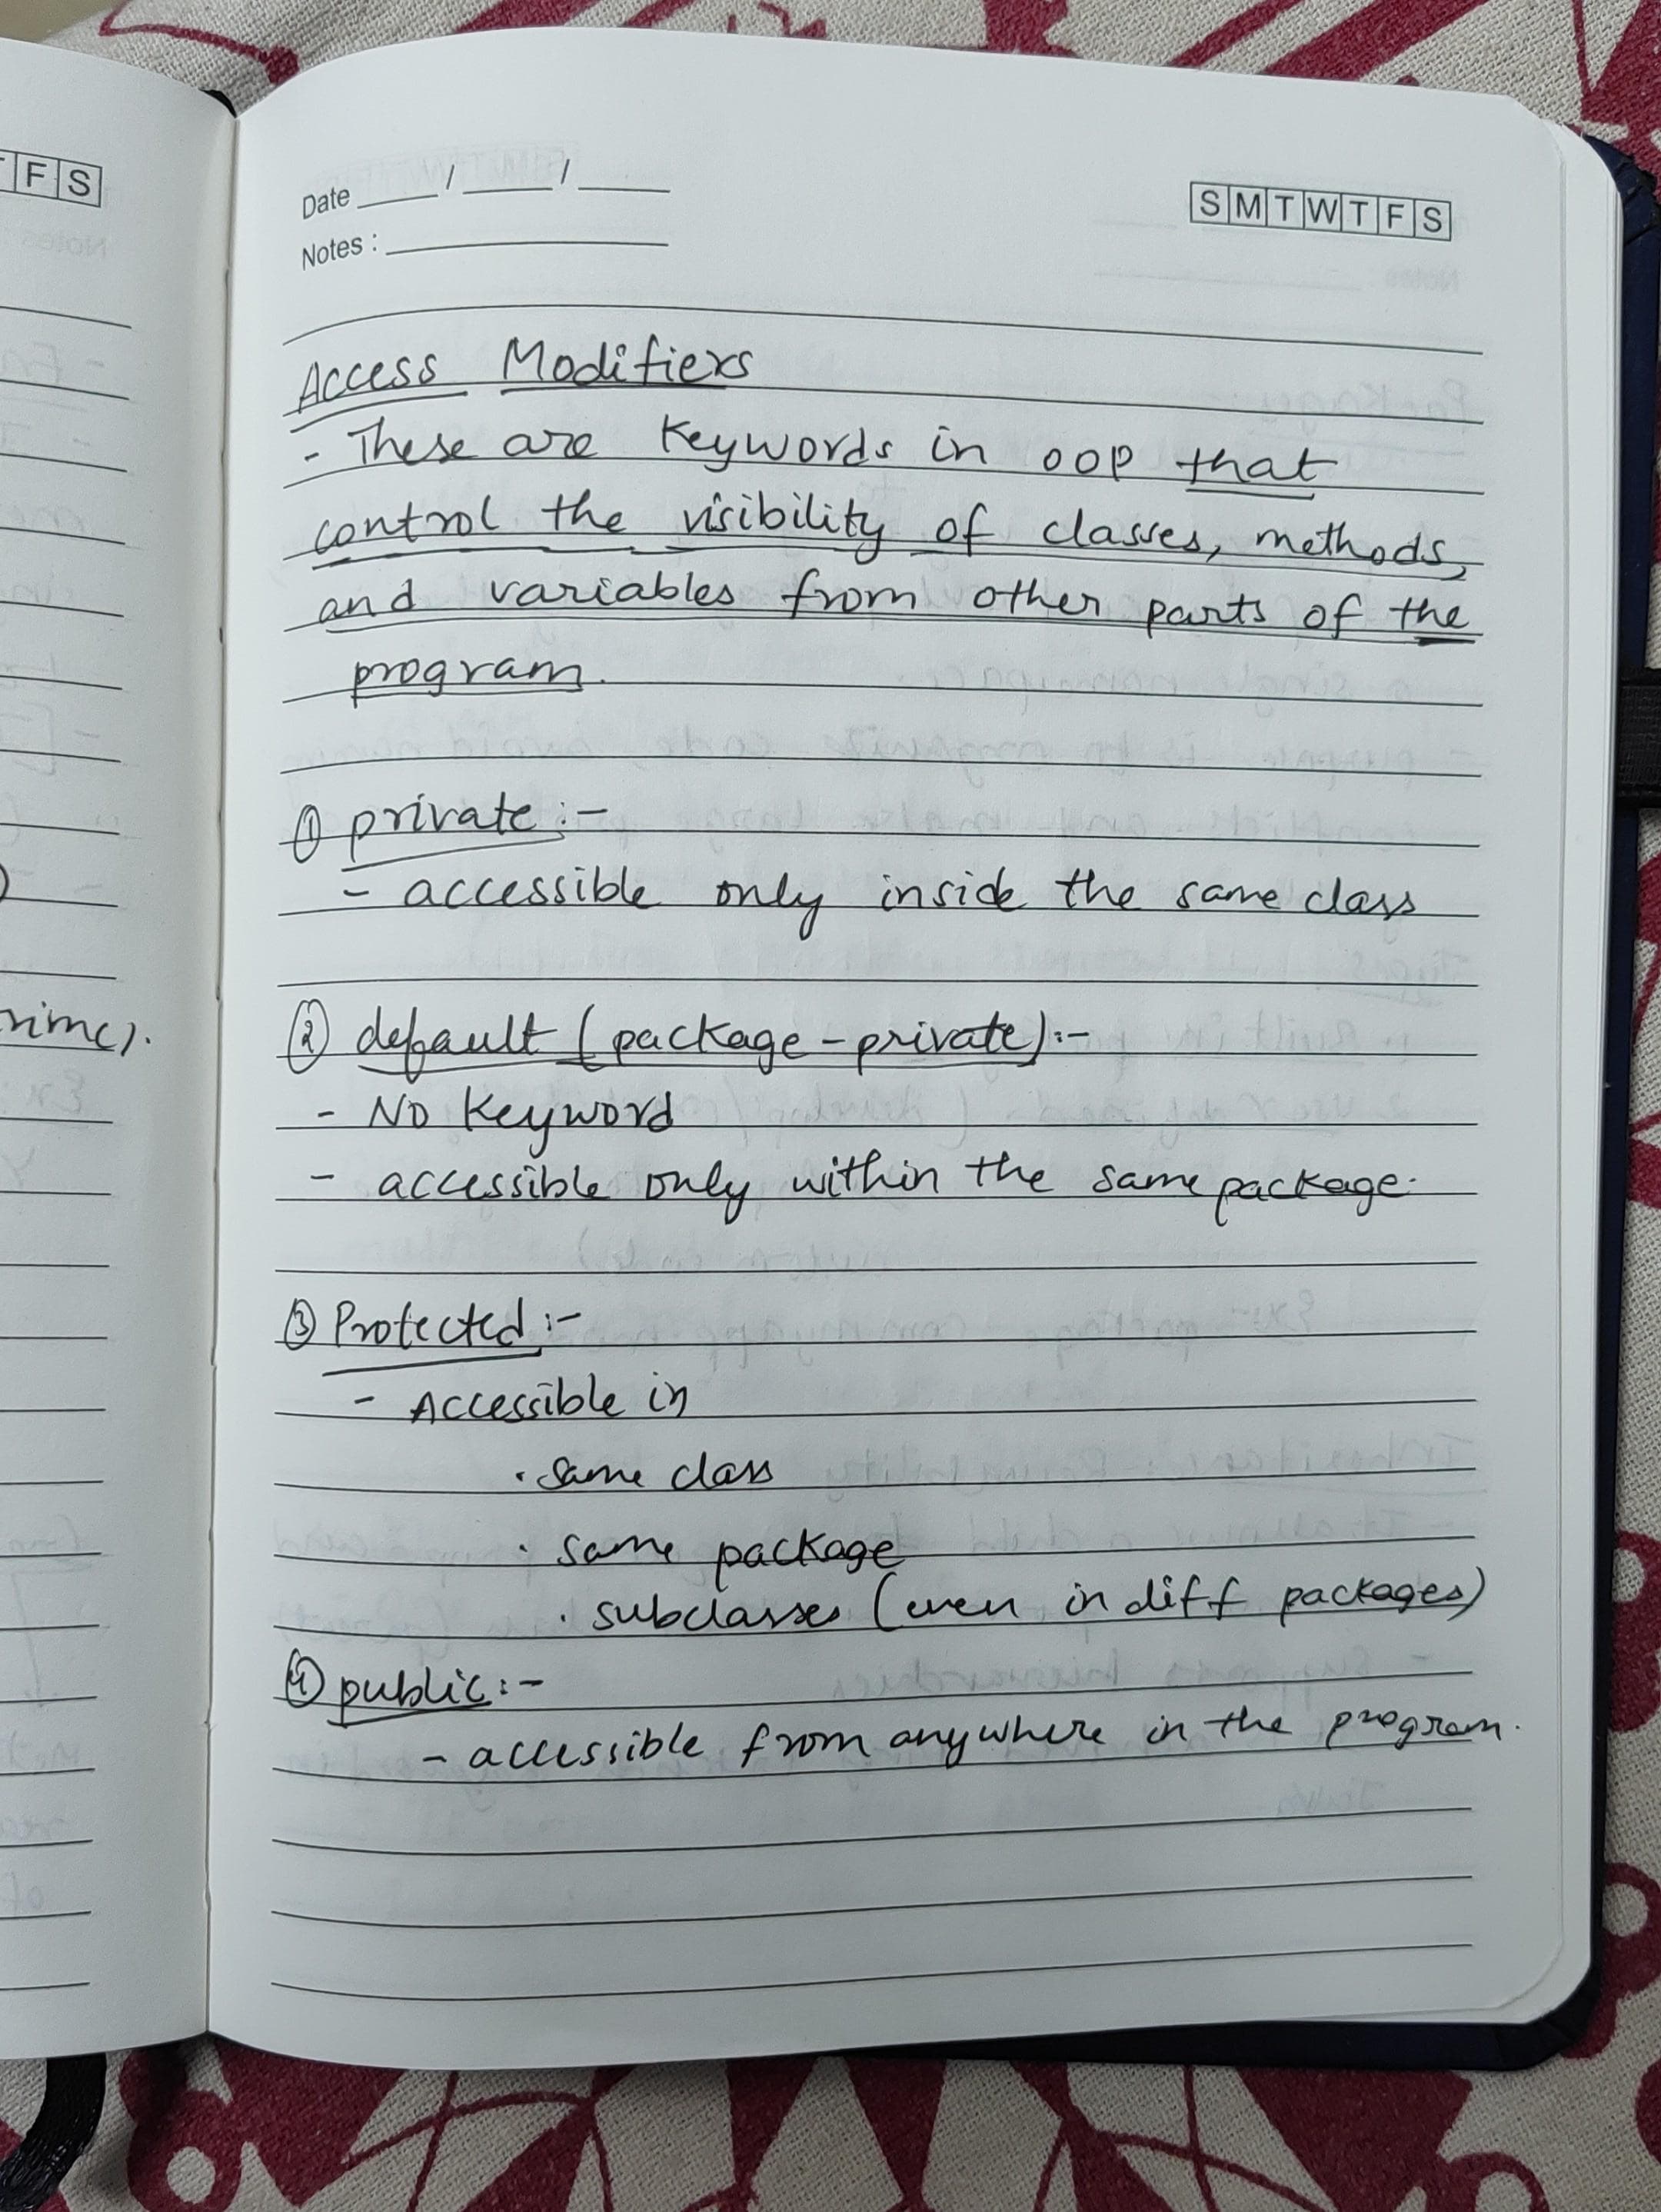 F S
Date ____/____/____
S M T W T F S
Notes : ________
Access Modifiers
- These are keywords in OOP that
control the visibility of classes, methods,
and variables from other parts of the
program.
① private :-
- accessible only inside the same class
② default (package-private) :-
- No keyword
- accessible only within the same package.
③ Protected :-
- Accessible in
· same class
· same package
· subclasses (even in diff packages)
④ public :-
- accessible from anywhere in the program.